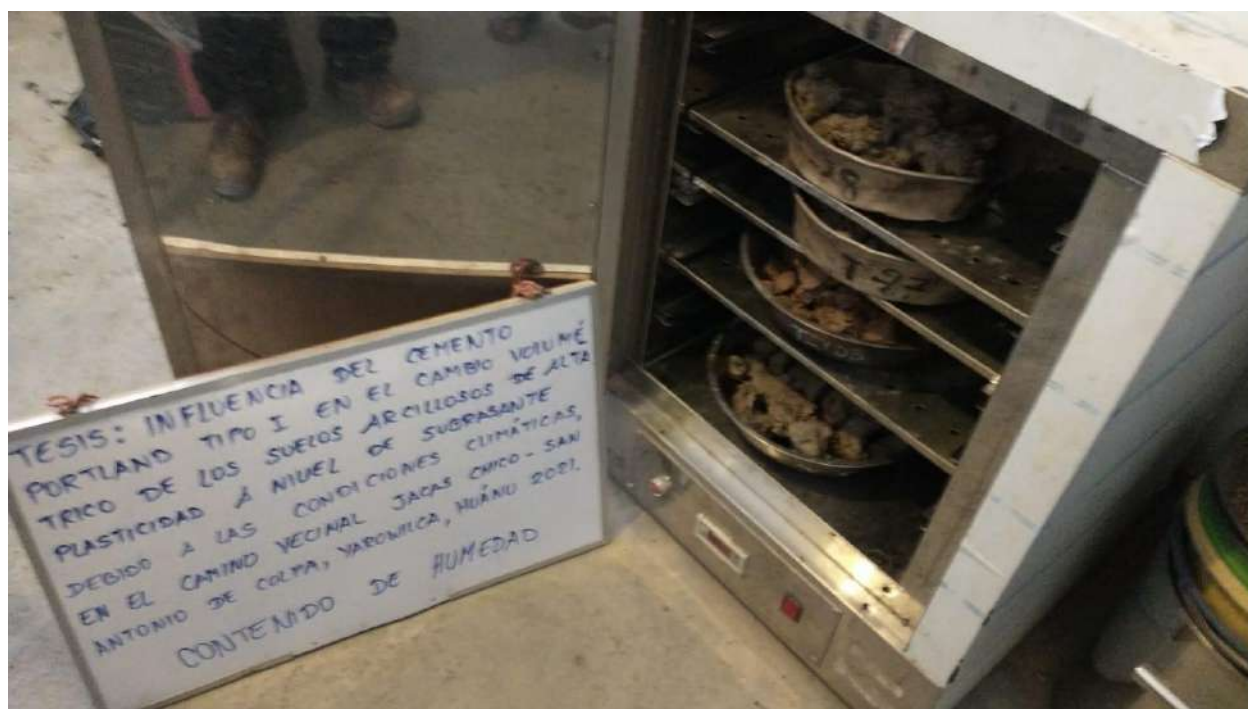 TESIS: INFLUENCIA DEL CEMENTO
PORTLAND TIPO I EN EL CAMBIO VOLUMÉ
TRICO DE LOS SUELOS ARCILLOSOS DE ALTA
PLASTICIDAD A NIVEL DE SUBRASANTE
DEBIDO A LAS CONDICIONES CLIMÁTICAS,
EN EL CAMINO VECINAL JACAS CHICO - SAN
ANTONIO DE COLPA, YAROWILCA, HUÁNU 2021.
CONTENIDO DE HUMEDAD
T-97